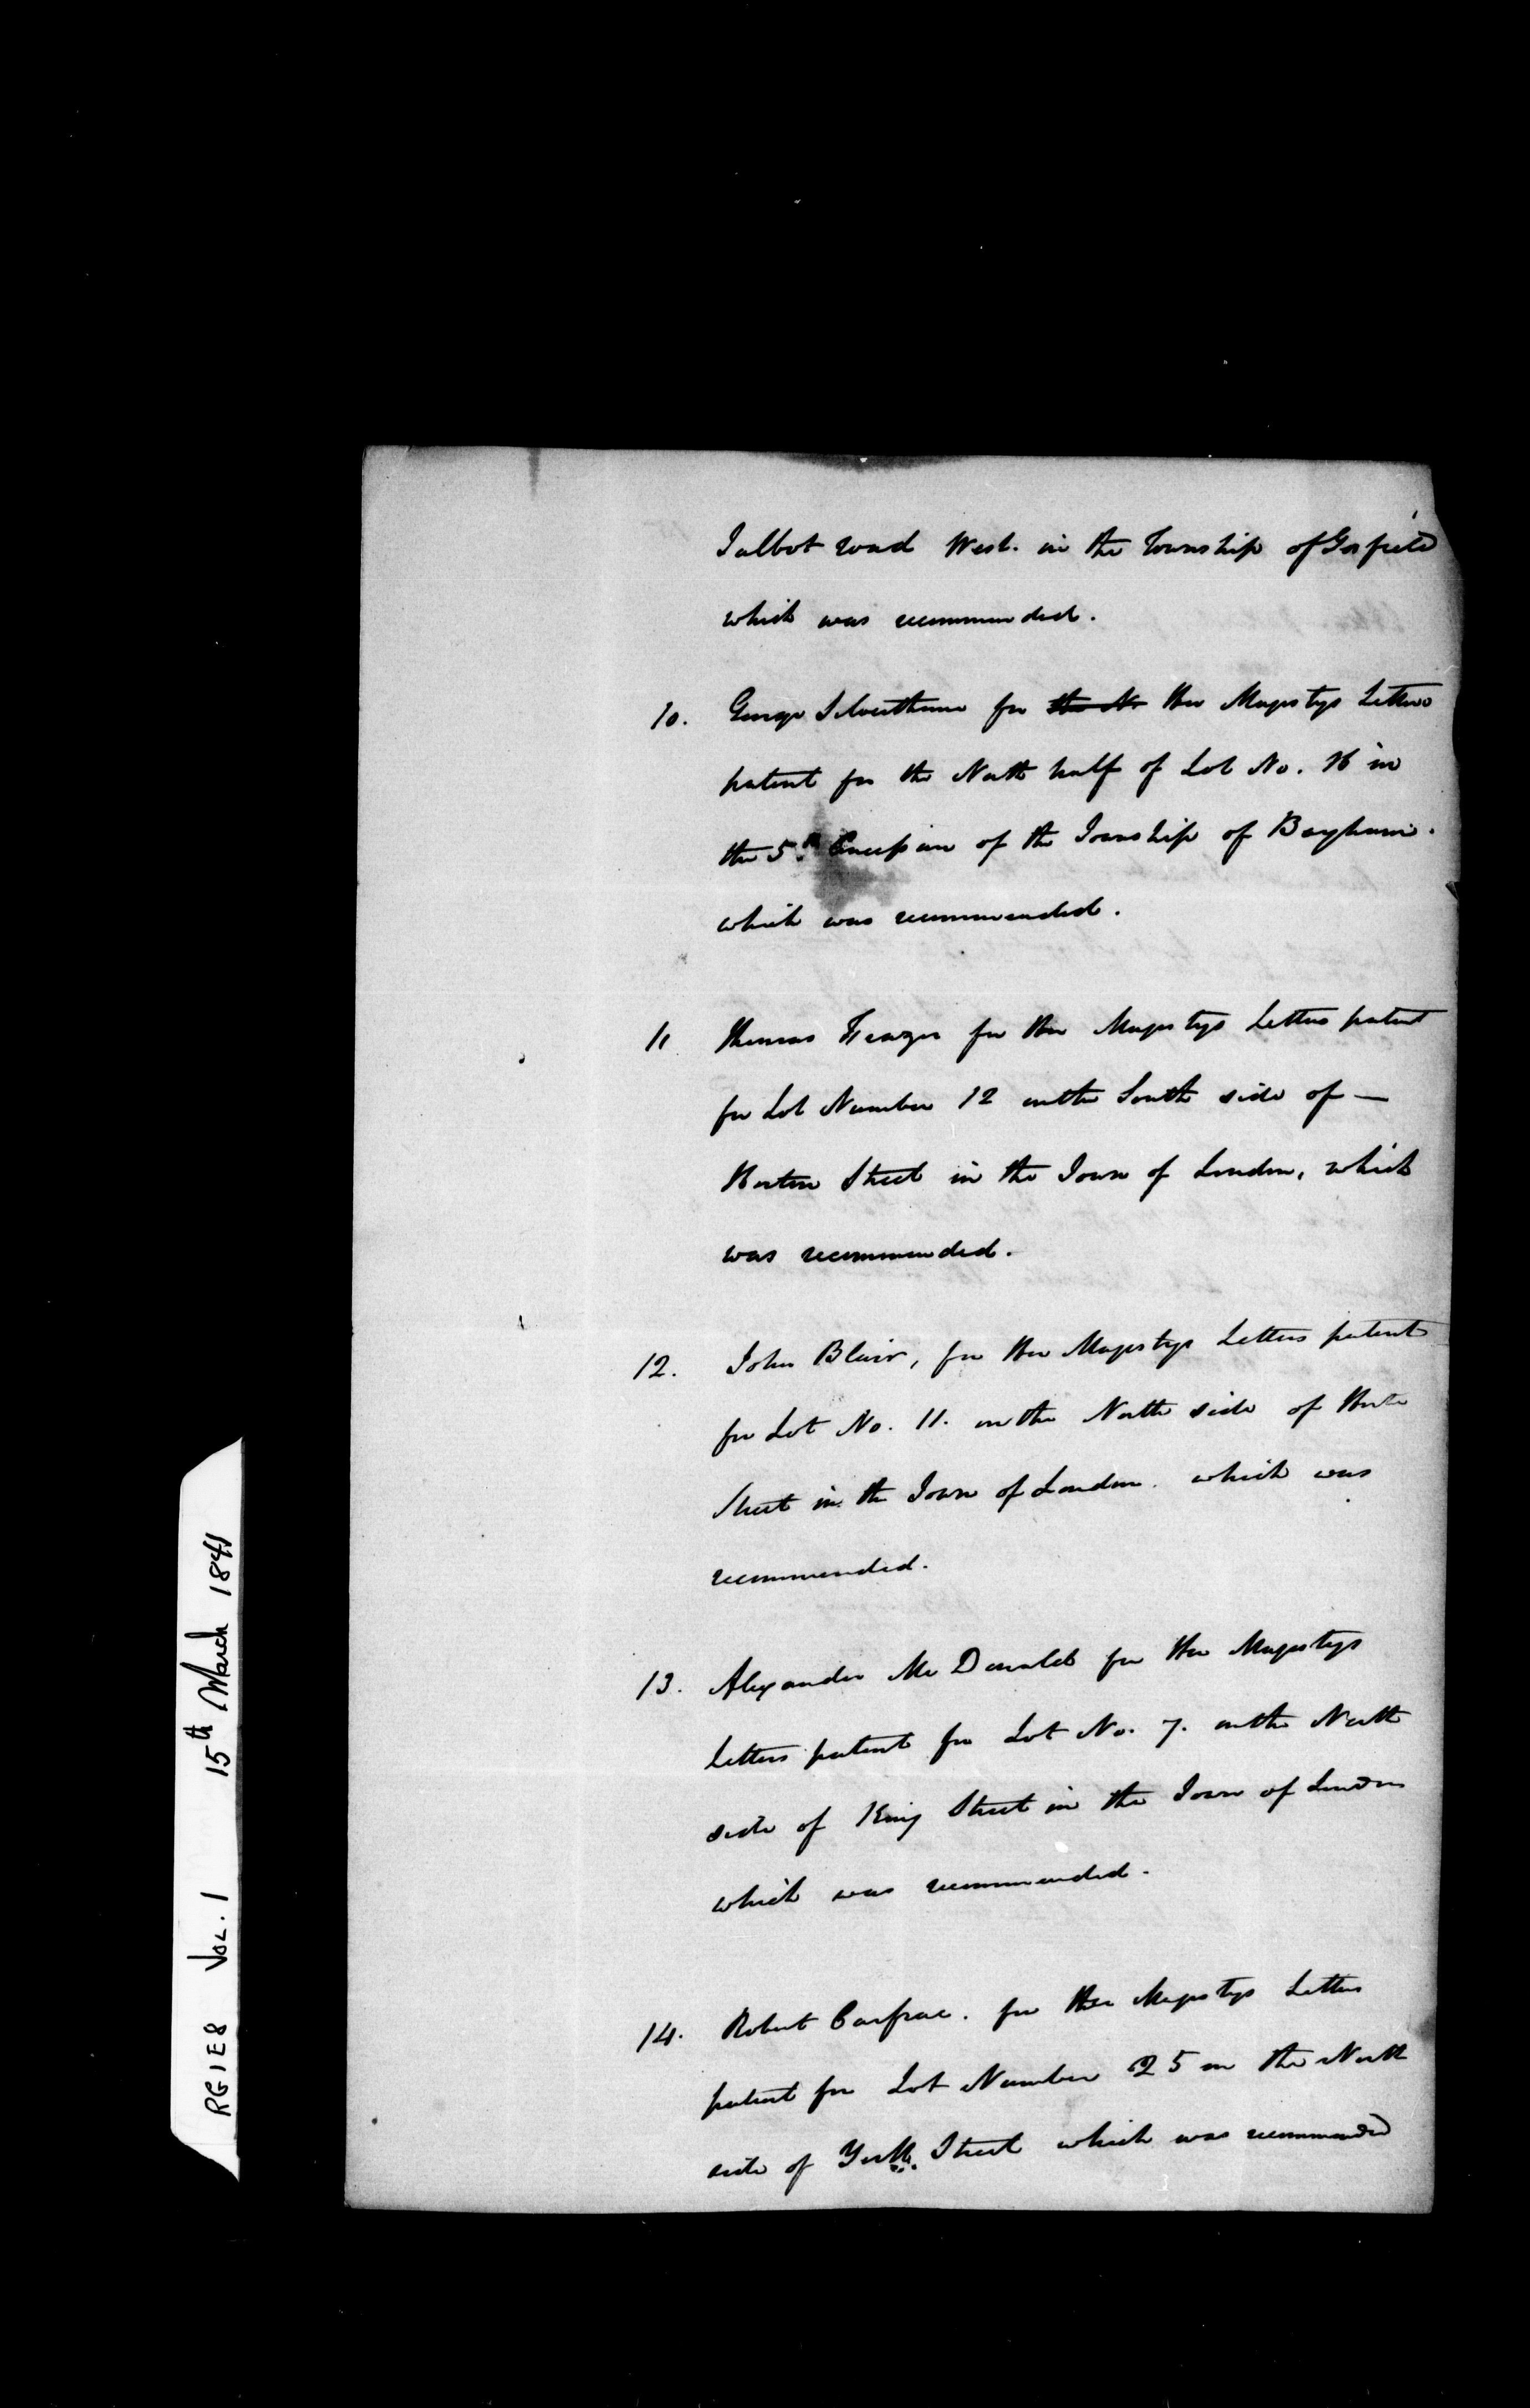 Talbot road West. in the Township of Gosfield
which was recommended.
10. George Silverthorne for the N Her Majestys Letters
patent for the North half of Lot No. 16 in
the 5th Concession of the Township of Bayham.
which was recommended.
11 Thomas Frazer for Her Majestys Letters patent
for Lot Number 12 on the South side of —
Horton Street in the Town of London, which
was recommended.
12. John Blair, for Her Majestys Letters patent
for Lot No. 11. on the North side of
Street in the Town of London. which was
recommended.
13. Alexander Mc Donald for Her Majestys
Letters patent for Lot No. 7. on the North
side of King Street in the Town of London
which was recommended.
14. Robert Carfrae. for Her Majestys Letters
patent for Lot Number 25 on the North
side of York. Street which was recommended
RG1E8 VOL. 1 15th March 1841